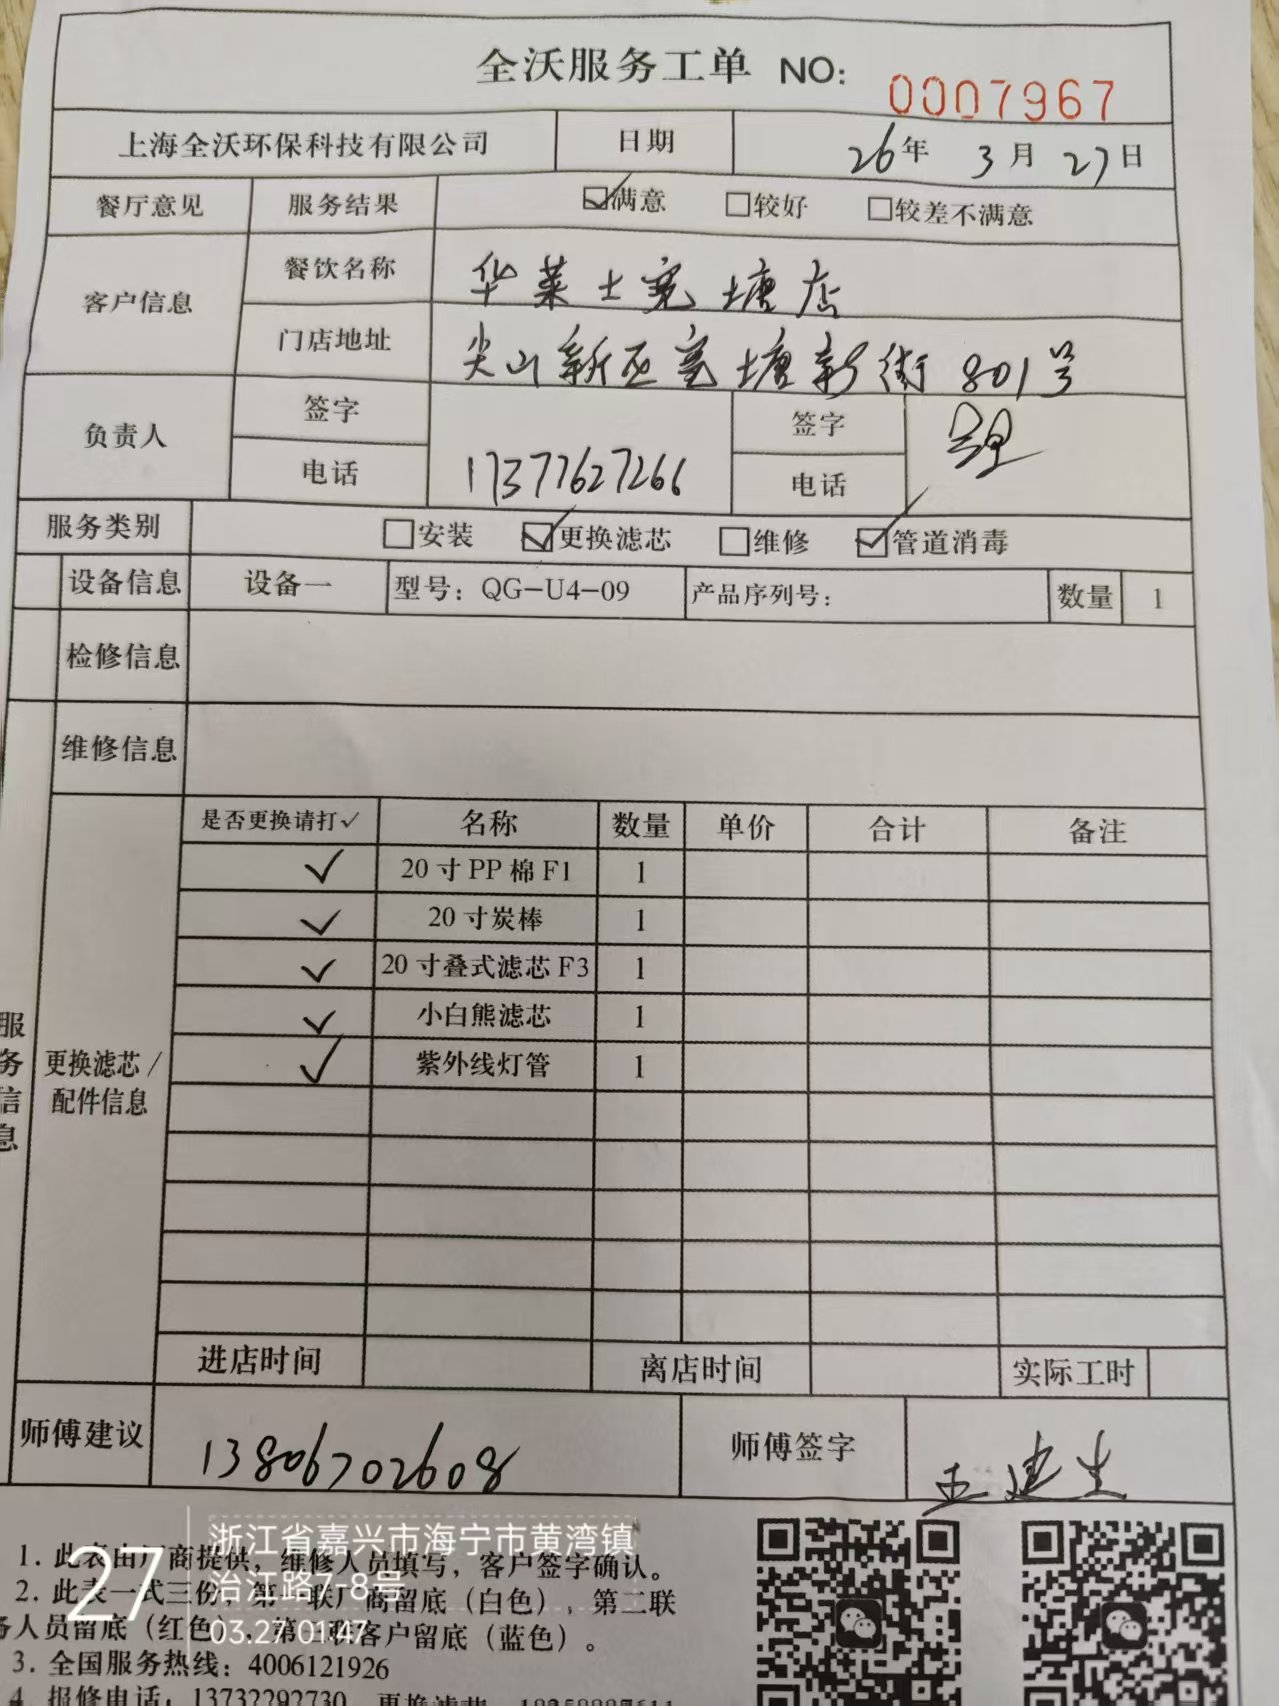 全沃服务工单 NO: 0007967
上海全沃环保科技有限公司 日期 26年 3月 27日
餐厅意见 服务结果 ☑满意 □较好 □较差不满意
客户信息 餐饮名称 华莱士宽塘店
门店地址 尖山新区宽塘新街801号
负责人 签字 签字
电话 17377627266 电话
服务类别 □安装 ☑更换滤芯 □维修 ☑管道消毒
设备信息 设备一 型号：QG-U4-09 产品序列号： 数量 1
检修信息
维修信息
服务信息
更换滤芯/
配件信息
是否更换请打✓ 名称 数量 单价 合计 备注
✓ 20寸PP棉F1 1
✓ 20寸炭棒 1
✓ 20寸叠式滤芯F3 1
✓ 小白熊滤芯 1
✓ 紫外线灯管 1
进店时间 离店时间 实际工时
师傅建议 13806702608 师傅签字 王建生
1. 此表由厂商提供，维修人员填写，客户签字确认。
2. 此表一式三份，第一联厂商留底（白色），第二联
务人员留底（红色），第三联客户留底（蓝色）。
3. 全国服务热线：4006121926
4. 报修电话：13732292730 更换滤芯
27
浙江省嘉兴市海宁市黄湾镇
治江路7-8号
03.27 01:47